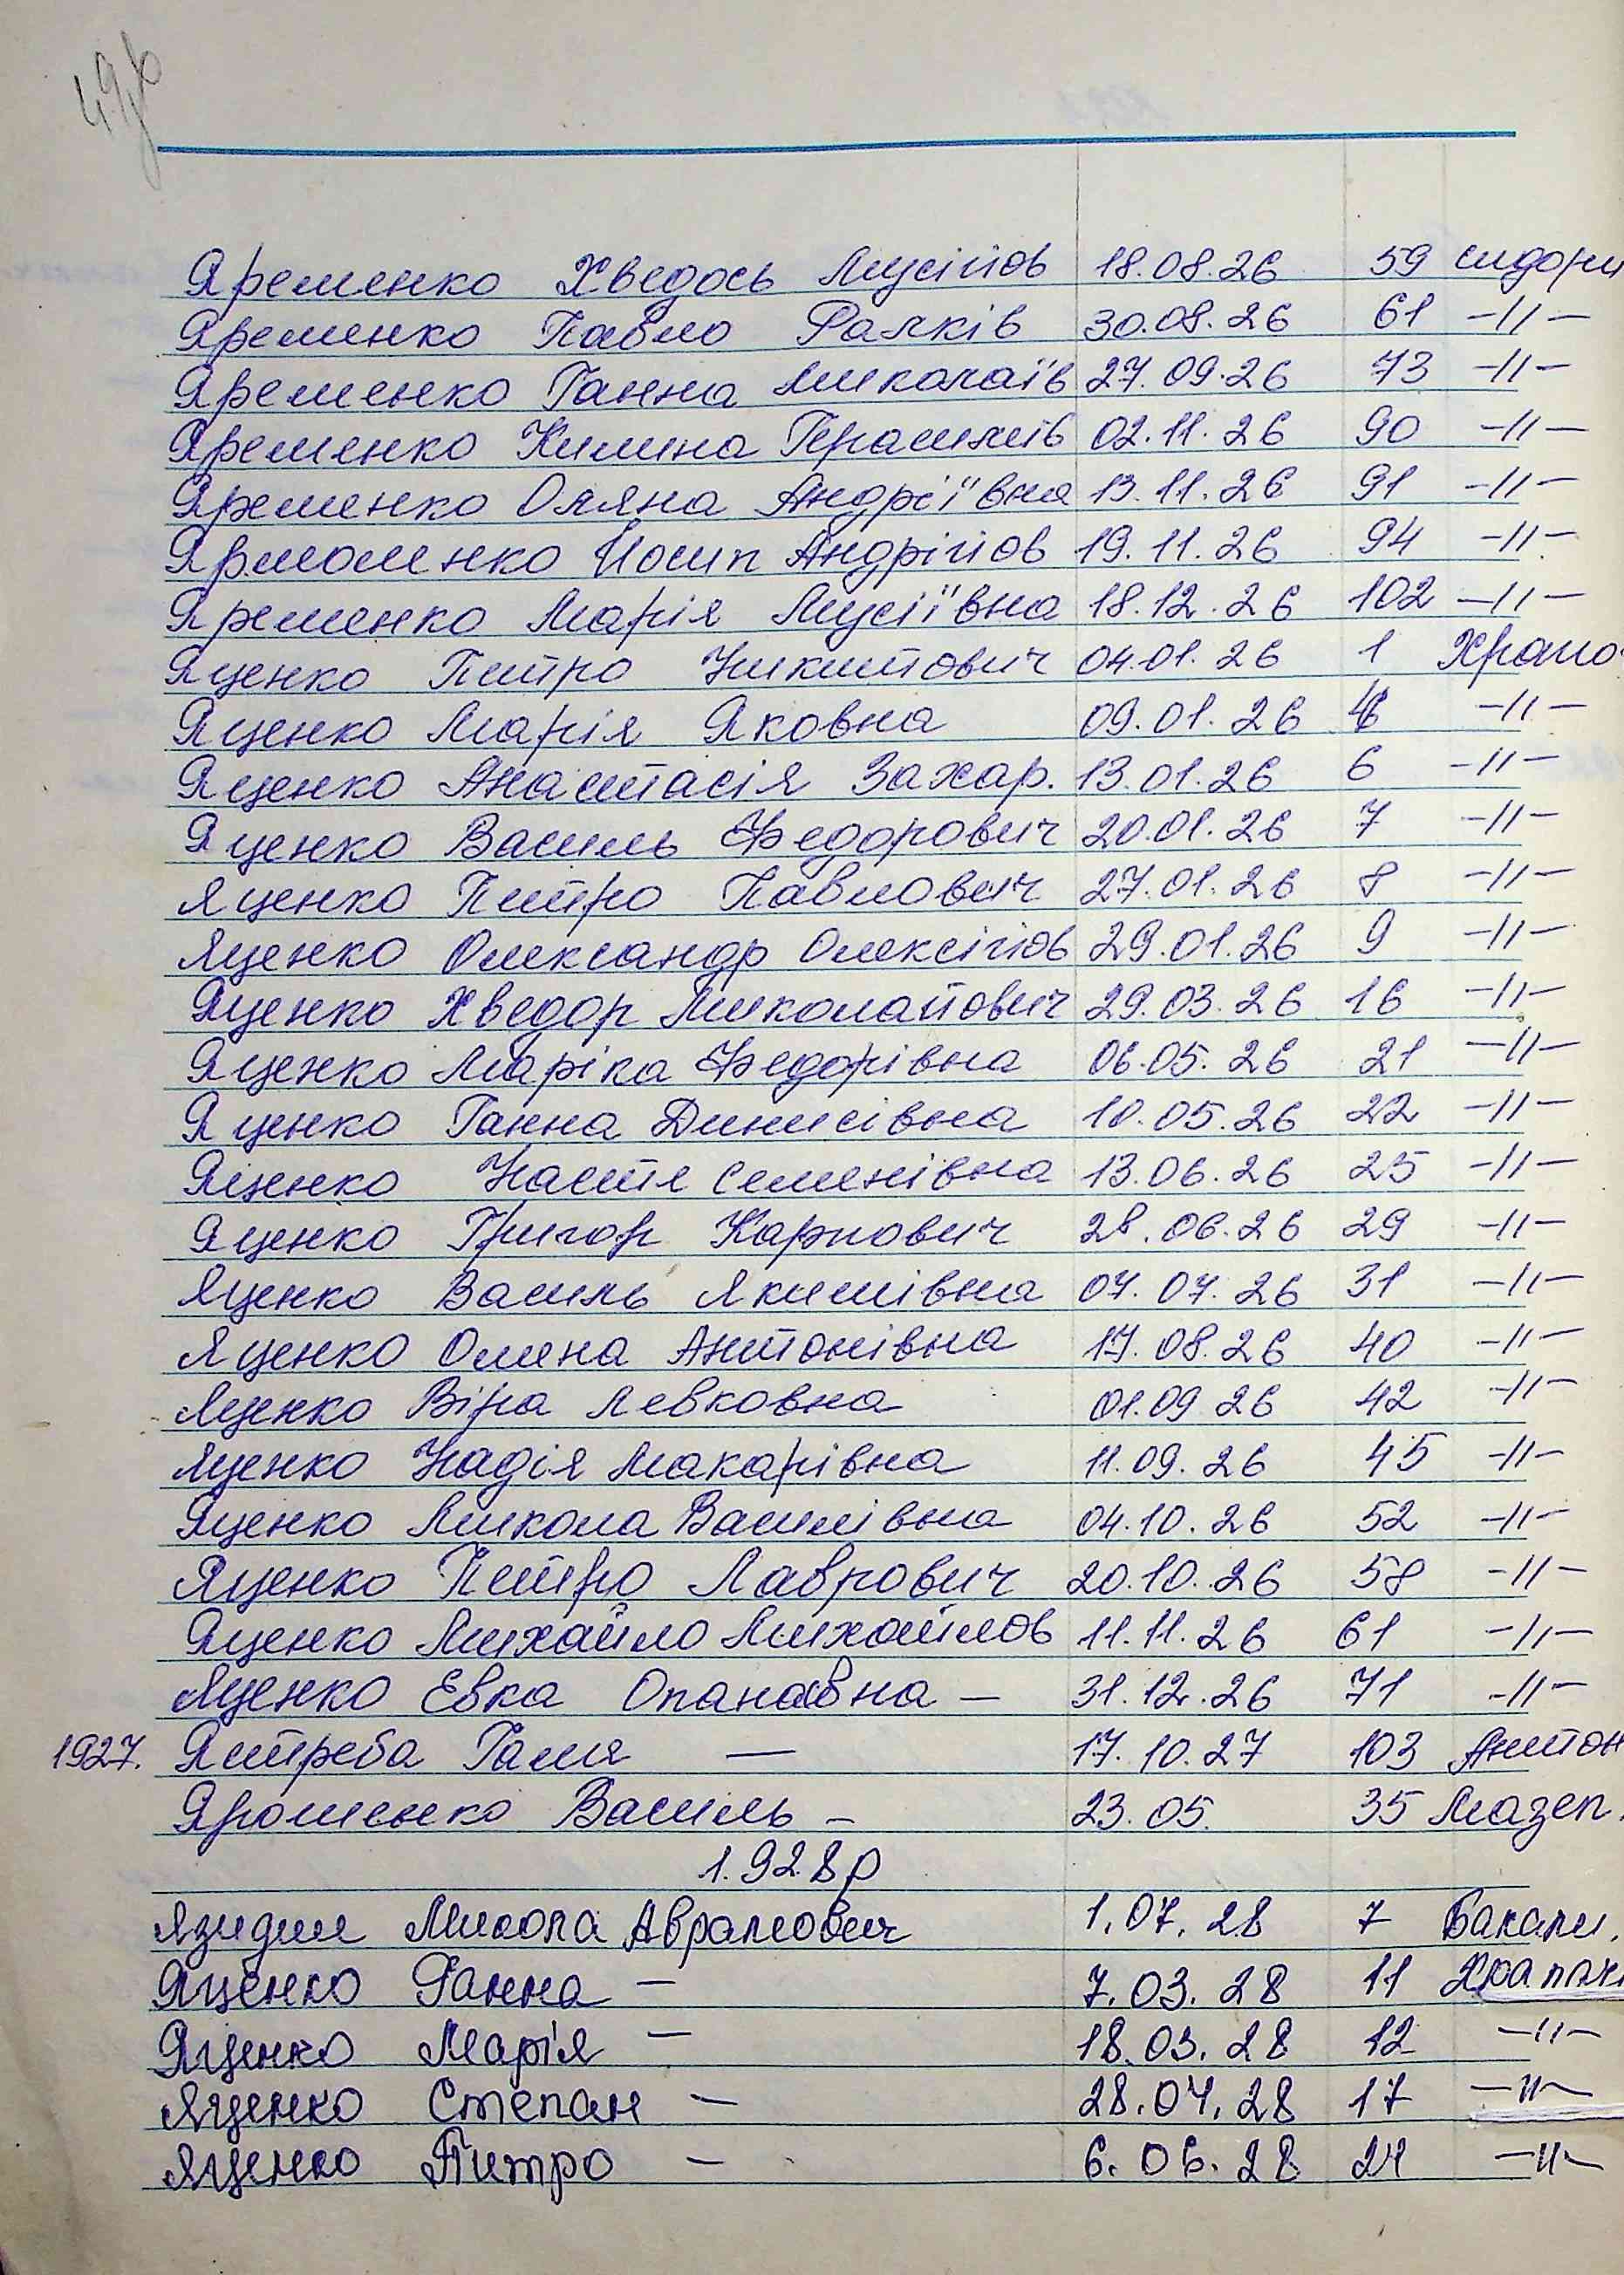 Яременко Хведось Мусійов 18.08.26 59 сидори
Яременко Павло Фалків 30.08.26 61 -//-
Яременко Ганна Миколаїв 27.09.26 73 -//-
Яременко Килина Герасимів 02.11.26 90 -//-
Яременко Оляна Андріївна 13.11.26 91 -//-
Ярмоленко Йосип Андрійов 19.11.26 94 -//-
Яременко Марія Мусіївна 18.12.26 102 -//-
Яценко Питро Никитович 04.01.26 1 Храпо
Яценко Марія Яковна 09.01.26 -//-
Яценко Анастасія Захар. 13.01.26 6 -//-
Яценко Василь Федорович 20.01.26 7 -//-
Яценко Питро Павлович 27.01.26 8 -//-
Яценко Олександр Олексійов 29.01.26 9 -//-
Яценко Хведор Миколайович 29.03.26 16 -//-
Яценко Маріка Федорівна 06.05.26 21 -//-
Яценко Ганна Динисівна 10.05.26 22 -//-
Яценко Настя Семенівна 13.06.26 25 -//-
Яценко Григор Карпович 28.06.26 29 -//-
Яценко Василь Якимівна 07.07.26 31 -//-
Яценко Олена Антонівна 17.08.26 40 -//-
Яценко Віра Левковна 01.09 26 42 -//-
Яценко Надія Макарівна 11.09.26 45 -//-
Яценко Микола Василівна 04.10.26 52 -//-
Яценко Петро Лаврович 20.10.26 58 -//-
Яценко Михайло Михайлов 11.11.26 61 -//-
Яценко Евка Опанаівна — 31.12.26 71 -//-
1927. Ястреба Галя — 17.10.27 103 Антон
Ярошенко Василь - 23.05. 35 Мазеп.
1.928р
Микола Аврамович 1.07.28 7 Бакали.
Яценко Ганна — 7.03.28 11 Храпач
Яценко Марія — 18.03.28 12 -//-
Яценко Степан — 28.04.28 17 -//-
Яценко Питро — 6.06.28 24 -//-